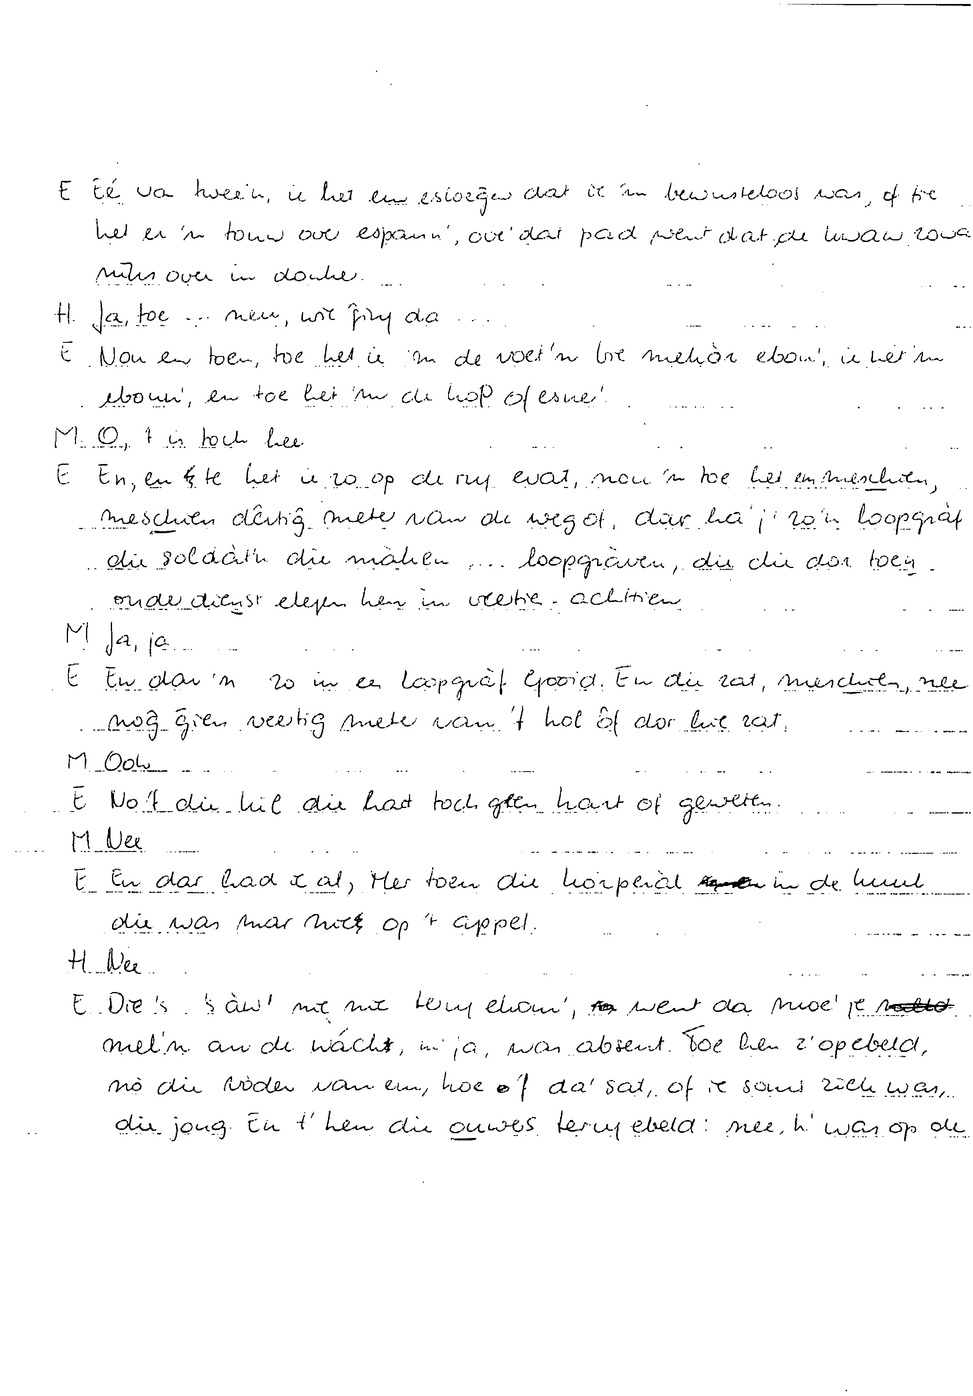 E Eé va twee'n, ie het em esloegen dat ie 'm bewusteloos was, of ie
het er 'n touw ove espann', ove' dat pad went dat de kwam zowa
niks over in donke.
H. Ja, toe ... neu, wie ging da ...
E Nou en toen, toe het ie 'm de voet'n bie mekààr ebon', ie het 'm
ebonn', en toe het 'm de kop ofesne'
M. O, 't is toch hee
E En, en te het ie zo op de rug evat, nou 'n toe het em meschien,
meschien dêrtig mete van de weg of, dar ha' j' zo'n loopgràf
die soldàt'n die màken .... loopgràven, die die dor toen
onde dienst elegen hen in veertie-achttien
M Ja, ja
E En dar 'm zo in ee loopgràf egooid. En die zat, meschien, nee
nog gien veertig mete van 't hol ôf dor hie zat.
M Ooh
E No't die kil die had toch geen hart of geweten.
M Nee
E En dar had ie al, Mer toen die korperàl in de kuul
die was mar niet op 't appel.
H. Nee
E Die 's 's àw' nie nie terug ekom', went da moe' je
mel'n an de wácht, m' ja, was absent. Toe hen z' opebeld,
nò die vòder van em, hoe of da' sat, of ie soms ziek was,
die jong. En t' hen die ouwes terug ebeld: nee, h' was op de